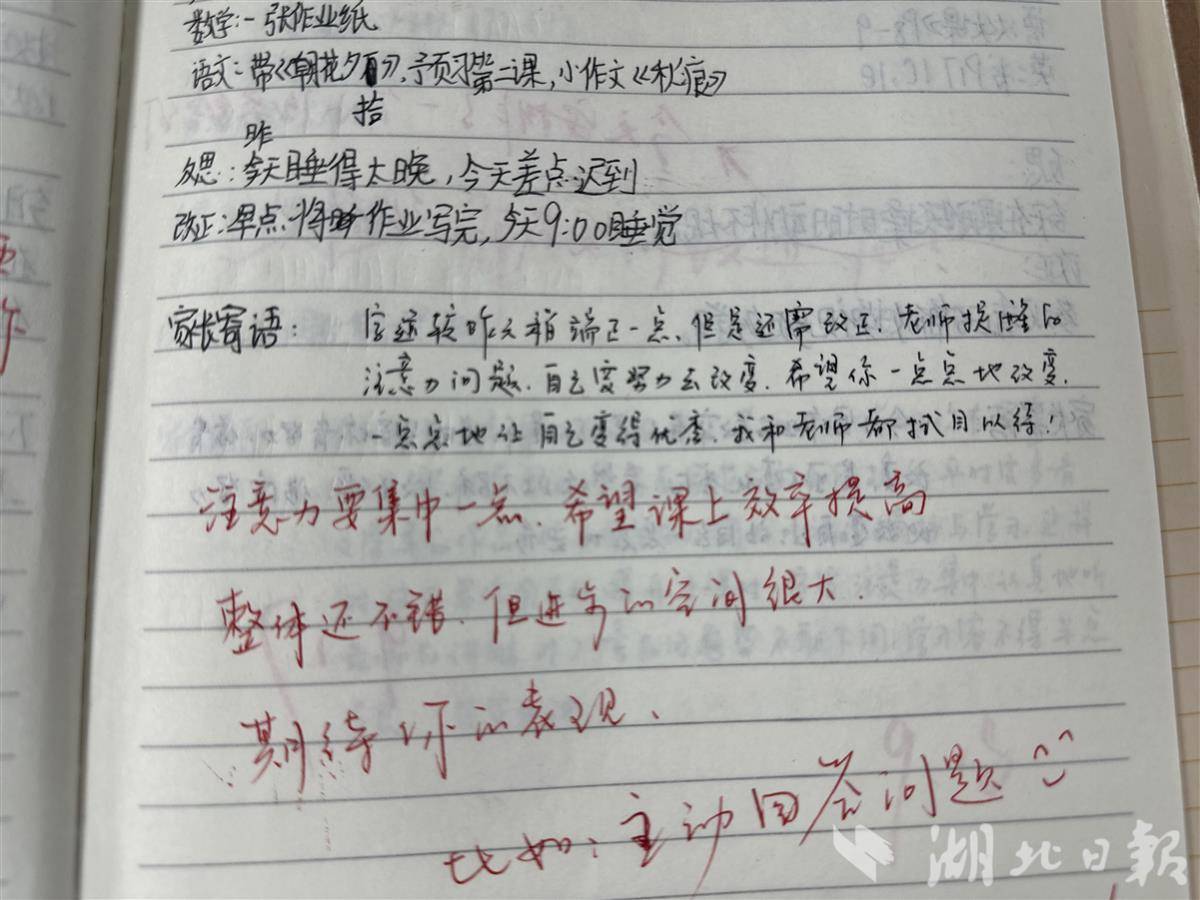 数学:一张作业纸
语文:带《朝花夕拾》,预习第二课,小作文《秋痕》
昨
反思:今天睡得太晚,今天差点迟到
改正:早点将作业写完,今天9:00睡觉
家长寄语: 字迹较昨天稍端正一点、但是还需改正.老师提醒的
注意力问题.自己要努力去改变.希望你一点点地改变.
一点点地让自己变得优秀 我和老师都拭目以待!
注意力要集中一点.希望课上效率提高
整体还不错.但进步的空间很大.
期待你的表现.
比如:主动回答问题
湖北日報